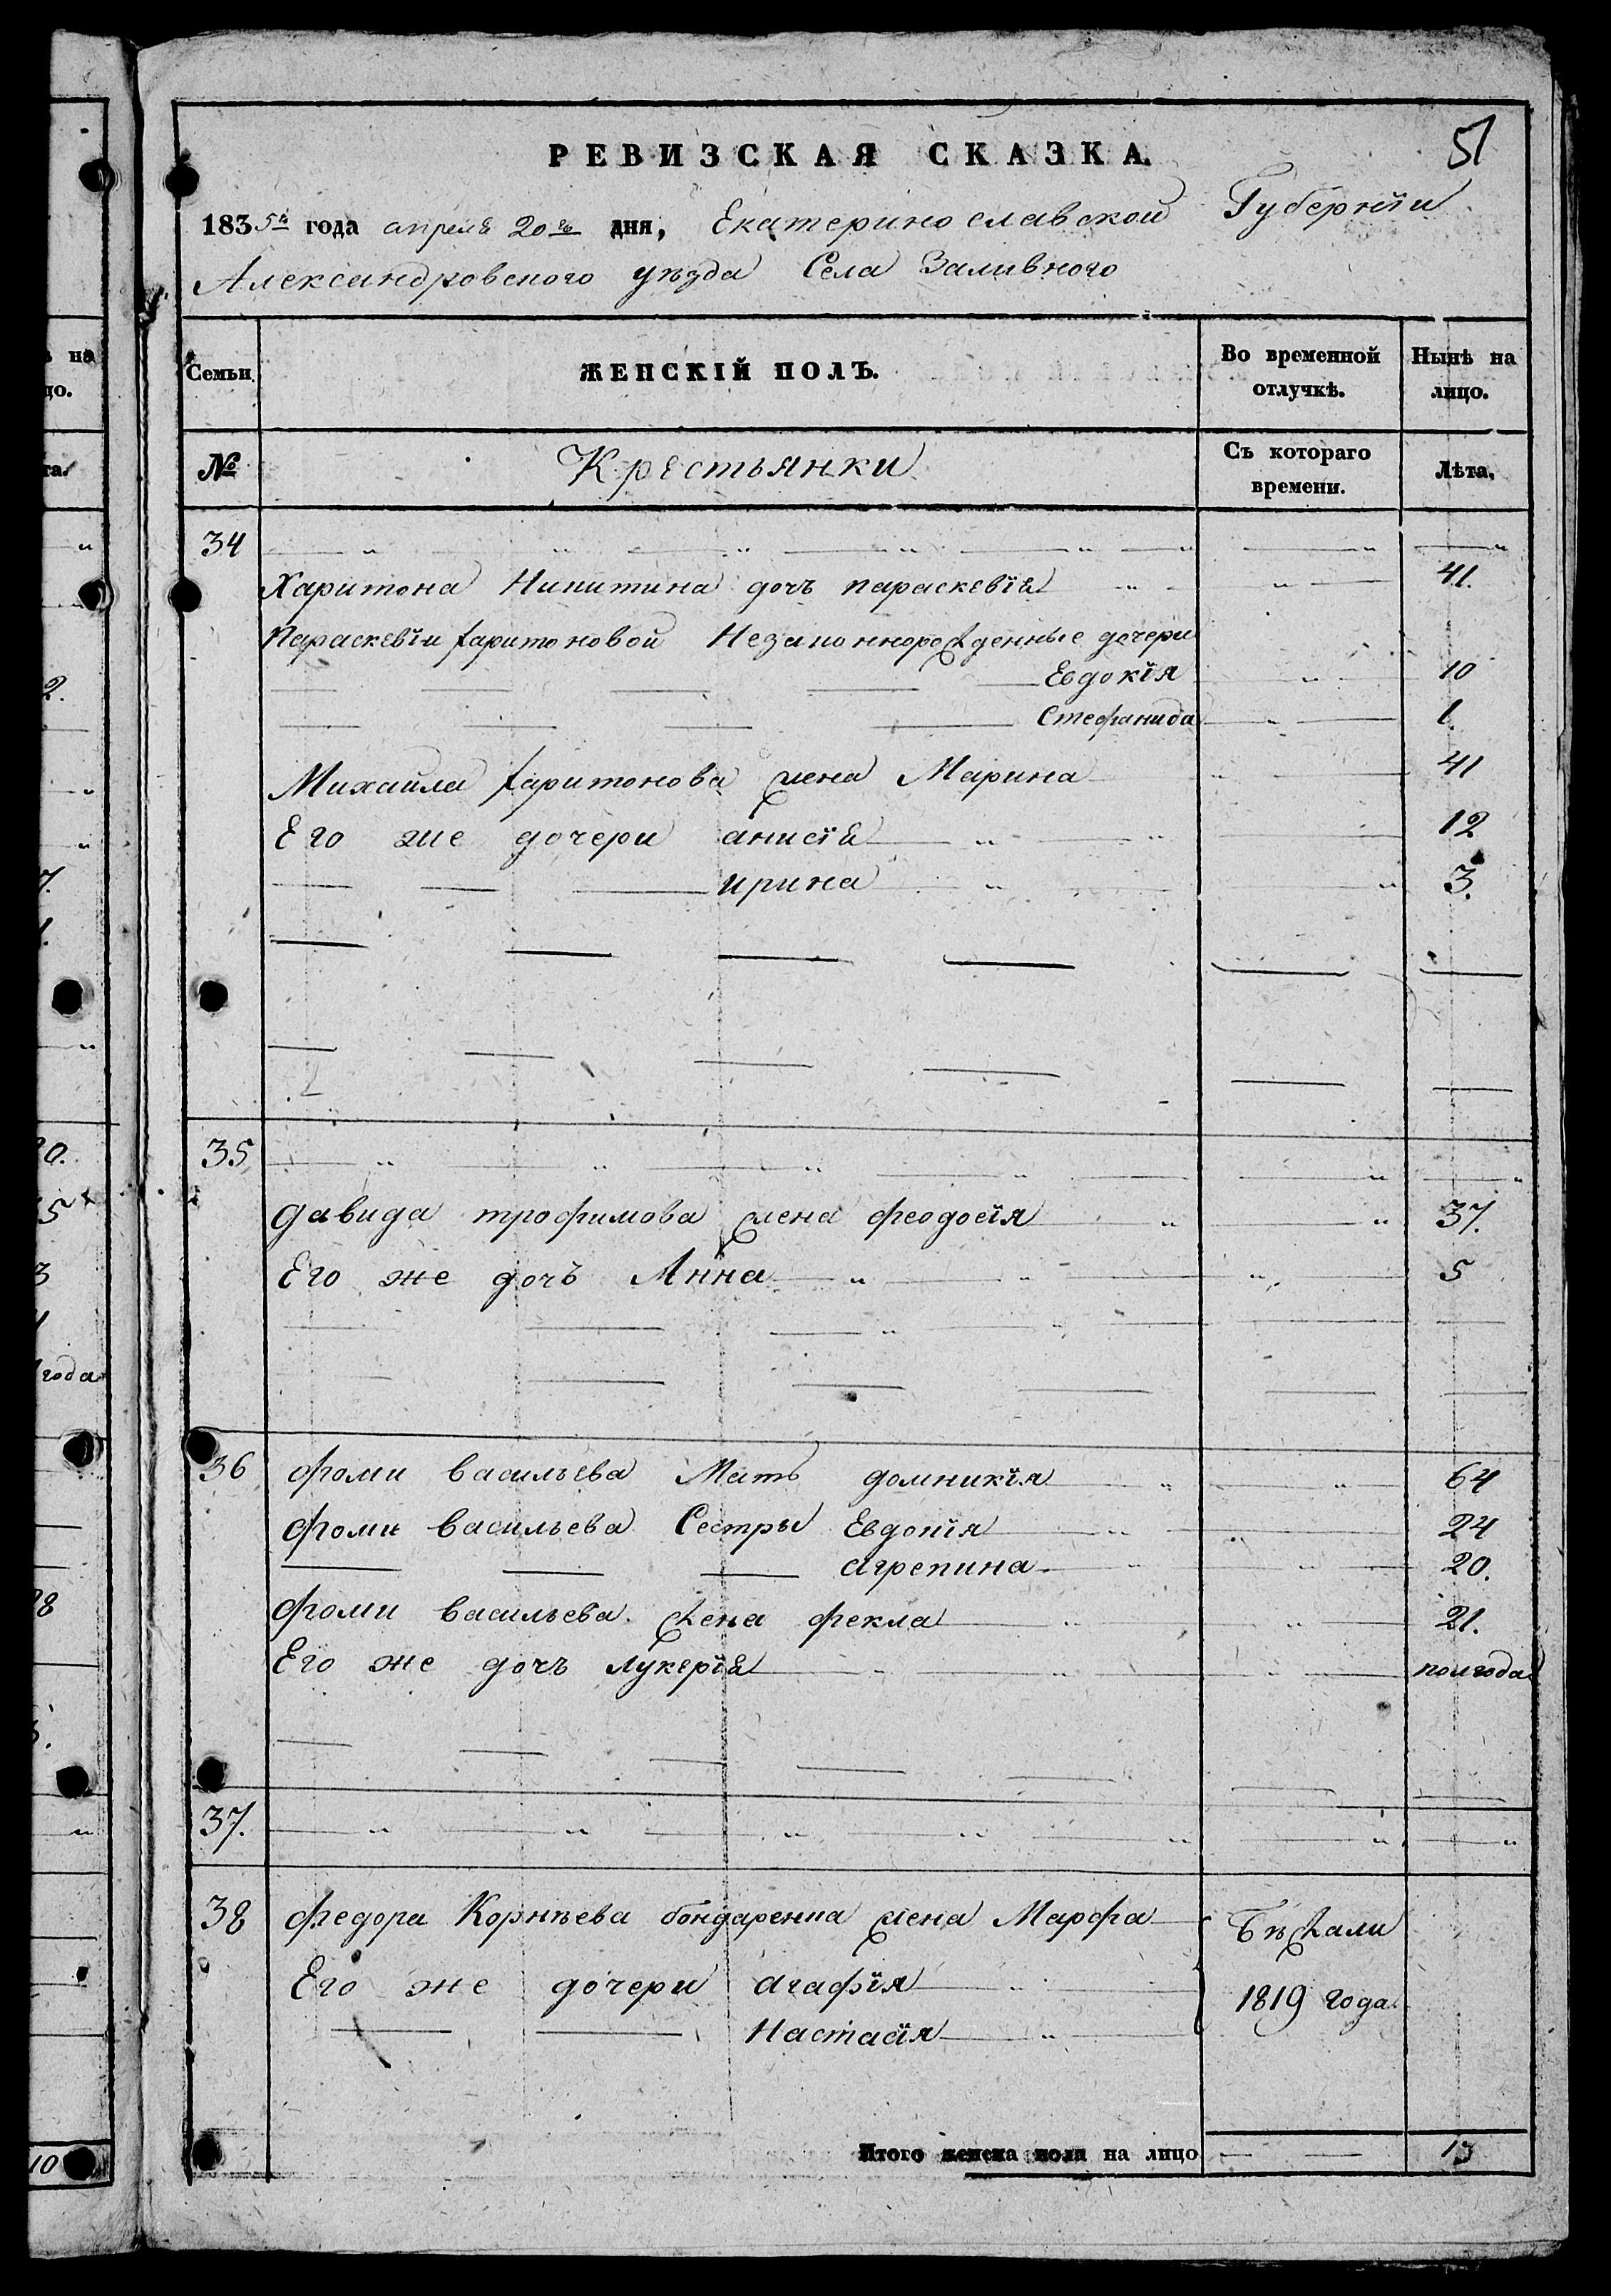 51
РЕВИЗСКАЯ СКАЗКА.
1835го года апреля 20го дня, Екатеринославской Губернїи
Александровского уѣзда Села Заливного
Семьи ЖЕНСКІЙ ПОЛЪ. Во временной отлучкѣ. Нынѣ на лицо.
№ Крестьянки Съ котораго времени. Лѣта.
34
Харитона Никитина дочь параскевїя 41.
Параскевїи харитоновой Незаконнорожденные дочери
Евдокїя 10
Стефанида 1.
Михайла харитонова жена Марина 41
Его же дочери анисїя 12
ирина 3.
35
давида трофимова жена феодосїя 37.
Его же дочь Анна 5
36 фоми васильева Мать домникїя 64
фоми васильева Сестры Евдокїя 24
агрепина 20.
фоми васильева жена фекла 21.
Его же дочь лукерїя полгода
37.
38 федора Корнѣева бондаренка жена Марфа Бѣжали
Его же дочери агафїя 1819 года
Настасїя
Итого женска пола на лицо 13
на
цо.
та.
2.
7.
1.
5
3
года
10